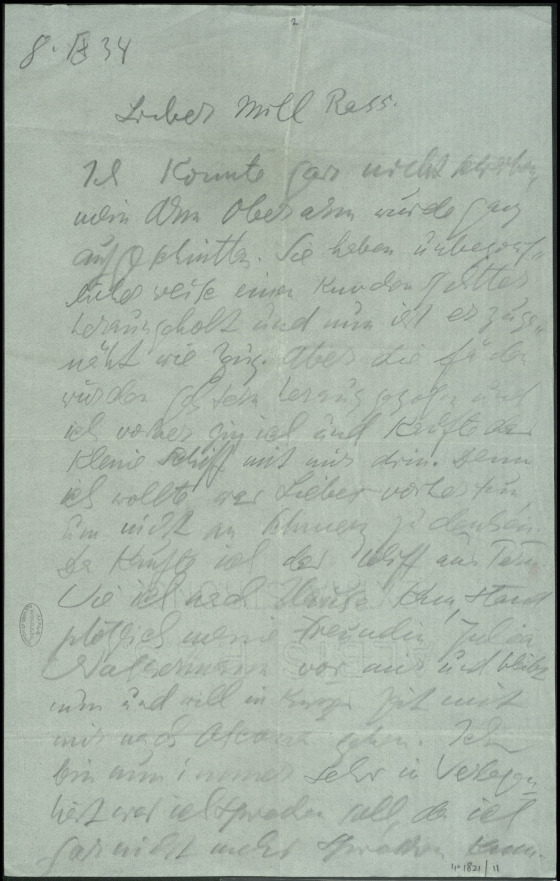 2
8. IX 34
Lieber Mill Ress.
Ich konnte gar nicht schreiben,
mein Arm Oberarm wurde ganz
aufgeschnitten. Sie haben unbegreif-
licherweise einen runden Splitter
herausgeholt und nun ist er zuge-
näht wie Zeug. Aber die Fäden
wurden gestern herausgezogen und
ich vorher ging ich und kaufte das
kleine Schiff mit mir drin. Denn
ich wollte was Liebes vorher tun
um nicht an Schmerz zu denken.
Da kaufte ich das Schiff aus
Wie ich nach Hause kam, stand
plötzlich meine Freundin
vor mir und bleibt
nun und will in kurzer Zeit mit
mir nach Ascona gehen. Ich
bin nun immer sehr in Verlegen-
heit was ich sprechen soll da ich
gar nicht mehr sprechen kann.
4° 1821/11